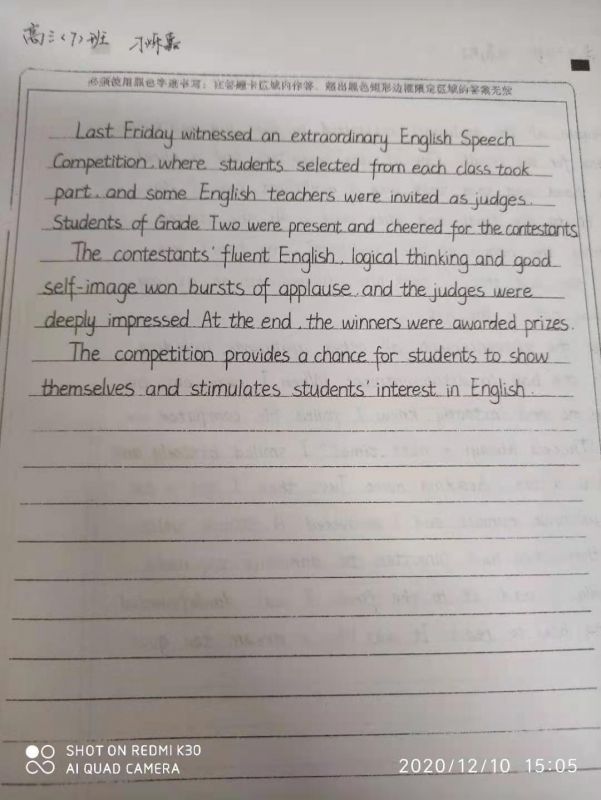 高三(7)班
必须使用黑色字迹书写；在答题卡区域内作答，超出黑色矩形边框限定区域的答案无效
Last Friday witnessed an extraordinary English Speech
Competition, where students selected from each class took
part, and some English teachers were invited as judges.
Students of Grade Two were present and cheered for the contestants.
The contestants' fluent English, logical thinking and good
self-image won bursts of applause, and the judges were
deeply impressed. At the end, the winners were awarded prizes.
The competition provides a chance for students to show
themselves and stimulates students' interest in English.
SHOT ON REDMI K30
AI QUAD CAMERA
2020/12/10 15:05